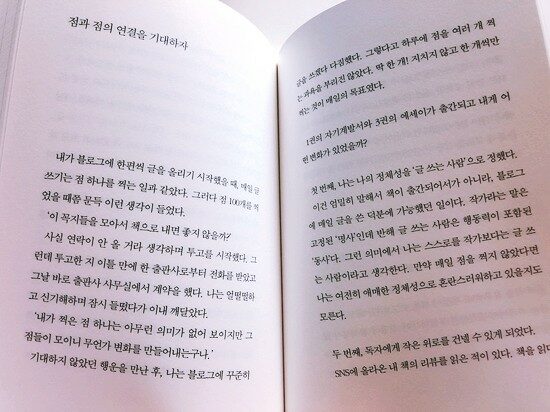 점과 점의 연결을 기대하자
내가 블로그에 한편씩 글을 올리기 시작했을 때, 매일 글
쓰기는 점 하나를 찍는 일과 같았다. 그러다 점 100개를 찍
었을 때쯤 문득 이런 생각이 들었다.
'이 꼭지들을 모아서 책으로 내면 좋지 않을까?'
사실 연락이 안 올 거라 생각하며 투고를 시작했다. 그
런데 투고한 지 이틀 만에 한 출판사로부터 전화를 받았고
그날 바로 출판사 사무실에서 계약을 했다. 나는 얼떨떨하
고 신기해하며 잠시 들떴다가 이내 깨달았다.
'내가 찍은 점 하나는 아무런 의미가 없어 보이지만 그
점들이 모이니 무언가 변화를 만들어내는구나.'
기대하지 않았던 행운을 만난 후, 나는 블로그에 꾸준히
글을 쓰겠다 다짐했다. 그렇다고 하루에 점을 여러 개 찍
는 과욕을 부리진 않았다. 딱 한 개! 지치지 않고 한 개씩만
찍는 것이 매일의 목표였다.
1권의 자기계발서와 3권의 에세이가 출간되고 내게 어
떤 변화가 있었을까?
첫 번째, 나는 나의 정체성을 '글 쓰는 사람'으로 정했다.
이건 엄밀히 말해서 책이 출간되어서가 아니라, 블로그
에 매일 글을 쓴 덕분에 가능했던 일이다. 작가라는 말은
고정된 '명사'인데 반해 글 쓰는 사람은 행동력이 포함된
'동사'다. 그런 의미에서 나는 스스로를 작가보다는 글 쓰
는 사람이라고 생각한다. 만약 매일 점을 찍지 않았다면
나는 여전히 애매한 정체성으로 혼란스러워하고 있을지도
모른다.
두 번째, 독자에게 작은 위로를 건넬 수 있게 되었다.
SNS에 올라온 내 책의 리뷰를 읽은 적이 있다. 책을 읽다